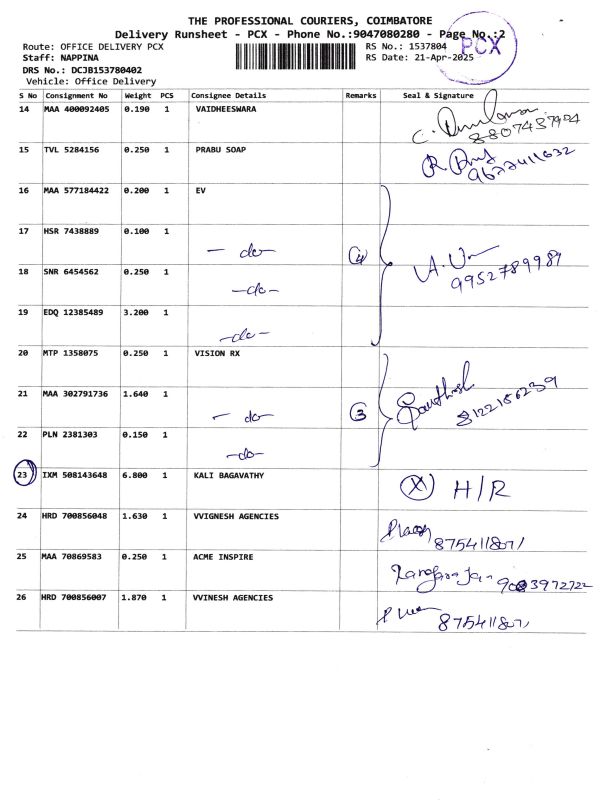 THE PROFESSIONAL COURIERS, COIMBATORE
Delivery Runsheet - PCX - Phone No.:9047080280 - Page No.:2
Route: OFFICE DELIVERY PCX
RS No.: 1537804
PCX
Staff: NAPPINA
RS Date: 21-Apr-2025
DRS No.: DCJB153780402
Vehicle: Office Delivery
S No Consignment No Weight PCS Consignee Details Remarks Seal & Signature
14 MAA 400092405 0.190 1 VAIDHEESWARA
8807437994
15 TVL 5284156 0.250 1 PRABU SOAP
16 MAA 577184422 0.200 1 EV
17 HSR 7438889 0.100 1
- do -
9952789989
18 SNR 6454562 0.250 1
- do -
19 EDQ 12385489 3.200 1
- do -
20 MTP 1358075 0.250 1 VISION RX
21 MAA 302791736 1.640 1
- do - 3
8122186239
22 PLN 2381303 0.150 1
- do -
23 IXM 508143648 6.800 1 KALI BAGAVATHY X H/R
24 HRD 700856048 1.630 1 VVIGNESH AGENCIES
8754118071
25 MAA 70869583 0.250 1 ACME INSPIRE
26 HRD 700856007 1.870 1 VVINESH AGENCIES
8754118071